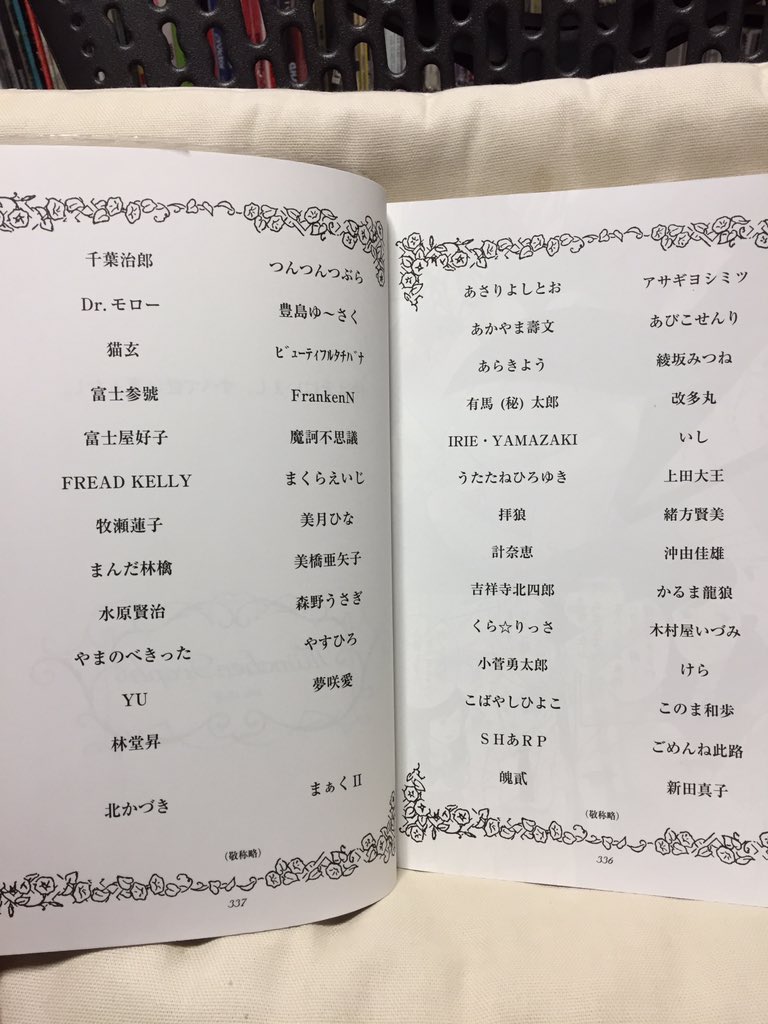 あさりよしとお アサギヨシミツ
あかやま壽文 あびこせんり
あらきよう 綾坂みつね
有馬 (秘) 太郎 改多丸
IRIE・YAMAZAKI いし
うたたねひろゆき 上田大王
拝狼 緒方賢美
計奈恵 沖由佳雄
吉祥寺北四郎 かるま龍狼
くら☆りっさ 木村屋いづみ
小菅勇太郎 けら
こばやしひよこ このま和歩
SHあRP ごめんね此路
魄貮 新田真子
(敬称略)
336
千葉治郎 つんつんつぶら
Dr.モロー 豊島ゆ～さく
猫玄 ﾋﾞｭｰﾃｨﾌﾙﾀﾁﾊﾞﾅ
富士参號 FrankenN
富士屋好子 魔訶不思議
FREAD KELLY まくらえいじ
牧瀬蓮子 美月ひな
まんだ林檎 美橋亜矢子
水原賢治 森野うさぎ
やまのべきった やすひろ
YU 夢咲愛
林堂昇
北かづき まぁくⅡ
(敬称略)
337